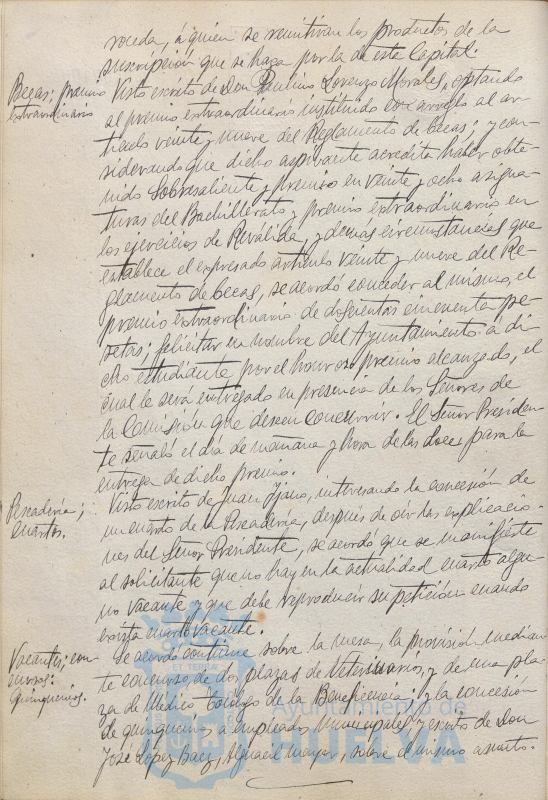 roceda, á quien se remitirán los productos de la
suscripción que se haga por la de este Capital.
Becas; premio
extraordinario
Visto escrito de Don Paulino Lorenzo Morales, optando
al premio extraordinario instituido con arreglo al ar-
tículo veinte y nueve del Reglamento de becas; y con-
siderando que dicho aspirante acredita haber obte-
nido Sobresaliente y premios en veinte y ocho asigna-
turas del Bachillerato y premio extraordinario en
los ejercicios de Reválida, y demas circunstancias que
establece el expresado artículo veinte y nueve del Re-
glamento de becas, se acordó conceder al mismo, el
premio extraordinario de doscientas cincuenta pe-
setas; felicitar en nombre del Ayuntamiento a di-
cho estudiante por el honroso premio alcanzado, el
cual le será entregado en presencia de los Señores de
la Comisión que deseen concurrir. El Señor Presiden-
te señaló el día de mañana y hora de las doce, para la
entrega de dicho premio.
Pescadería;
cuartos.
Visto escrito de Juan, interesando la concesión de
un cuarto de la Pescadería, después de oir las explicacio-
nes del Señor Presidente, se acordó que se manifieste
al solicitante que no hay en la actualidad cuarto algu-
no vacante y que debe reproducir su petición cuando
exista cuarto vacante.
Vacantes; con-
cursos:
quinquenios.
Se acordó continúe sobre la mesa, la provisión median-
te concurso, de dos plazas de Veterinario, y de una pla-
za de Médico Tocólogo de la Beneficencia: y la concesión
de quinquenios a empleados Municipales, y escrito de Don
José López Baez, Alguacil mayor, sobre el mismo asunto.
Ayuntamiento de
HUELVA